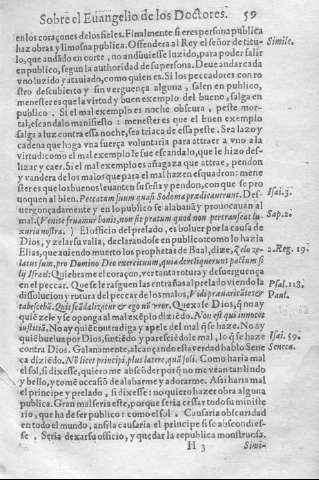 Sobre el Euangelio de los Doctores. 59
en los coraçones de los fieles. Finalmente si eres persona publica
haz obras y limosna publica. Offendera al Rey el señor de titu-
lo, que andãdo en corte, no anduuiesse luzido, para poder salir
en publico, segun la authoridad de su persona. Deue andar cada
vno luzido y atauiado, como quien es. Si los peccadores con ro
stro descubierto y sin verguença alguna, salen en publico,
menester es que la virtud y buen exemplo del bueno, salga en
publico. Si el mal exemplo es noche obscura, peste mor-
tal, escandalo manifiesto: menester es que el buen exemplo
salga a luz contra essa noche, sea triaca de essa peste. Sea lazo y
cadena que haga vna fuerça voluntaria para attraer a vno a la
virtud: como el mal exemplo le fue escandalo, que le hizo des-
lizar y caer. Si el mal exemplo es añagaza que attrae, pendon
y vandera de los malos que para el mal hazen esquadron: mene
ster es que los buenos leuanten su seña y pendon, con que se pro
uoquen al bien. Peccatum suum quasi Sodoma prædicauerunt. Des-
uergonçadamente y en lo publico se alabauã y prouocauan al
mal. (Venite fruamur bonis, non sit pratum quod non pertranseat lu-
xuria nostra.) El officio del prelado, es boluer por la causa de
Dios, y zelar su valia, declarandose en publico: como lo hazia
Elias, que auiendo muerto los prophetas de Baal, dize, Zelo ze-
latus sum, pro Domino Deo exercituum, quia dereliquerunt pactum fi
lij Israel: Quiebrame el coraçon, ver tanta rotura y desuerguença
en el peccar. Que se le rasguen las entrañas al prelado viendo la
dissolucion y rotura del peccar de los malos, Vidi præuaricãtes &
tabescebã. Quis scãdalizatur & ego nõ vror. Quexase Dios, q̃ no ay
quiẽ zele y se oponga al mal exẽplo diziẽdo. Non est qui inuocet
iustitiã. No ay quiẽ contradiga y apele del mal q̃ se haze. No ay
quiẽ buelua por Dios, sintiẽdo y pareciẽdole mal, lo q̃ se haze
contra Dios. Galanamente, alcançando esta verdad hablo Sene
ca diziẽdo. Nõ licet principi, plus latere, quã soli. Como haria mal
el sol, si dixesse, quiero me absconder porq̃ no me vean tan lindo
y bello, y tomẽ occasiõ de alabarme y adorarme. Assi haria mal
el principe y prelado, si dixesse: no quiero hazer obra alguna
publica. Gran mal seria este, porque seria cessar todo su ministe
rio, que ha de ser publico: como el sol. Causaria obscuridad
en todo el mundo, ansi la causaria el principe si se abscondies-
se. Seria dexar su officio, y quedar la republica monstruosa.
H 3 Simi-
Simile.
Isai. 3.
Sap. 2.
2. Reg. 19.
Psal. 118.
Paul.
Isai. 59.
Seneca.